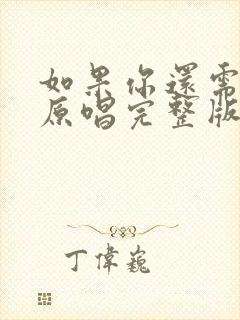 如果你還需
原唱完整版
丁偉巍